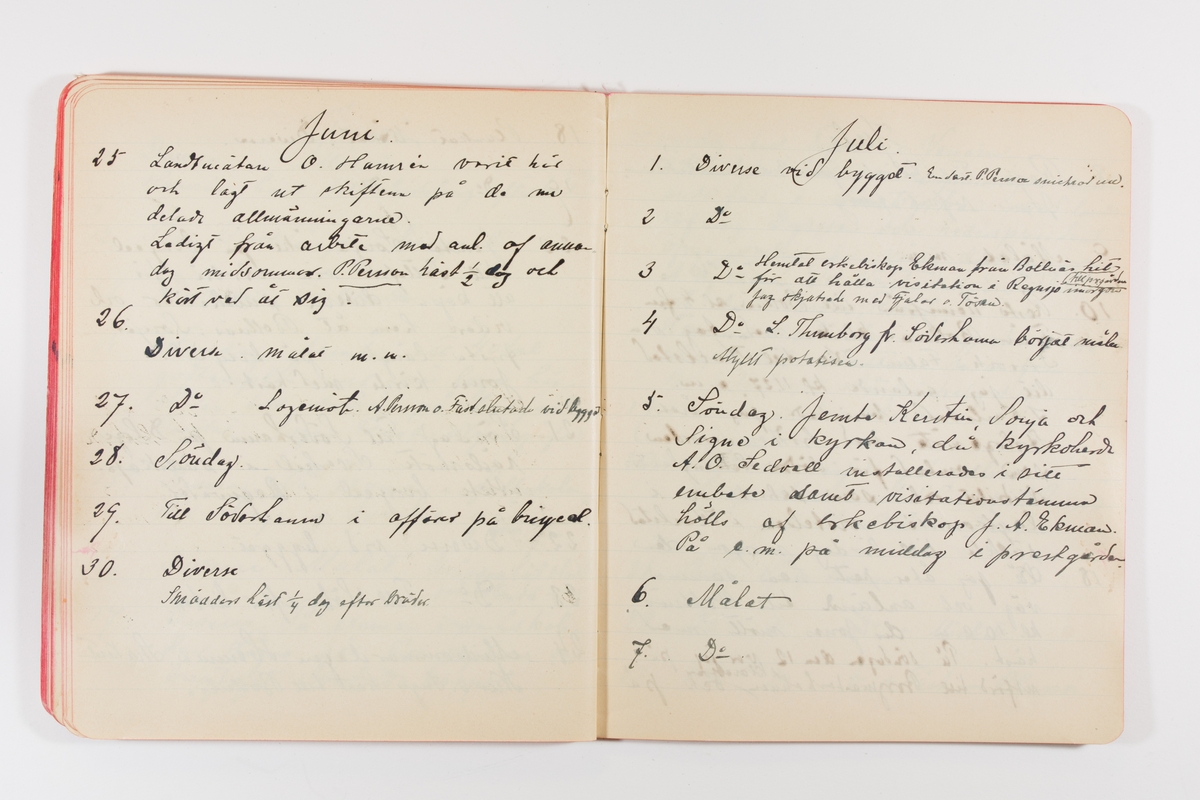 Juni.
25 Landtmätare O. Hamrén varit här
och lagt ut skiftena på de nu
delade allmänningarne.
Ledigt från arbete med anl. af annan-
dag midsommar. P. Person häst ½ dag och
kört ved åt sig
26.
Diverse. målat m. m.
27. Do Logemöte. A. Person o. Fäst slutade vid bygget
28. Söndag.
29. Till Söderhamn i affärer på bicycel.
30. Diverse
häst ¼ dag efter bräder
Juli.
1. Diverse vid bygget. Endast P. Person
2 Do
3 Do Hemtat erkebiskop Ekman från Bollnäs hit
för att hålla visitation i Regnsjö imorgon
jag skjutsade med Fjalar o. Tösen.
4 Do L. Thunborg fr. Söderhamn börjat måla
Myllt potatisen.
5. Söndag. Jemte Kerstin, Sonja och
Signe i kyrkan, då kyrkoherde
A. O. Sedvall installerades i sitt
embete samt visitationsstämma
hölls af erkebiskop J. A. Ekman.
På e. m. på middag i prestgården.
6. Målat
7. Do